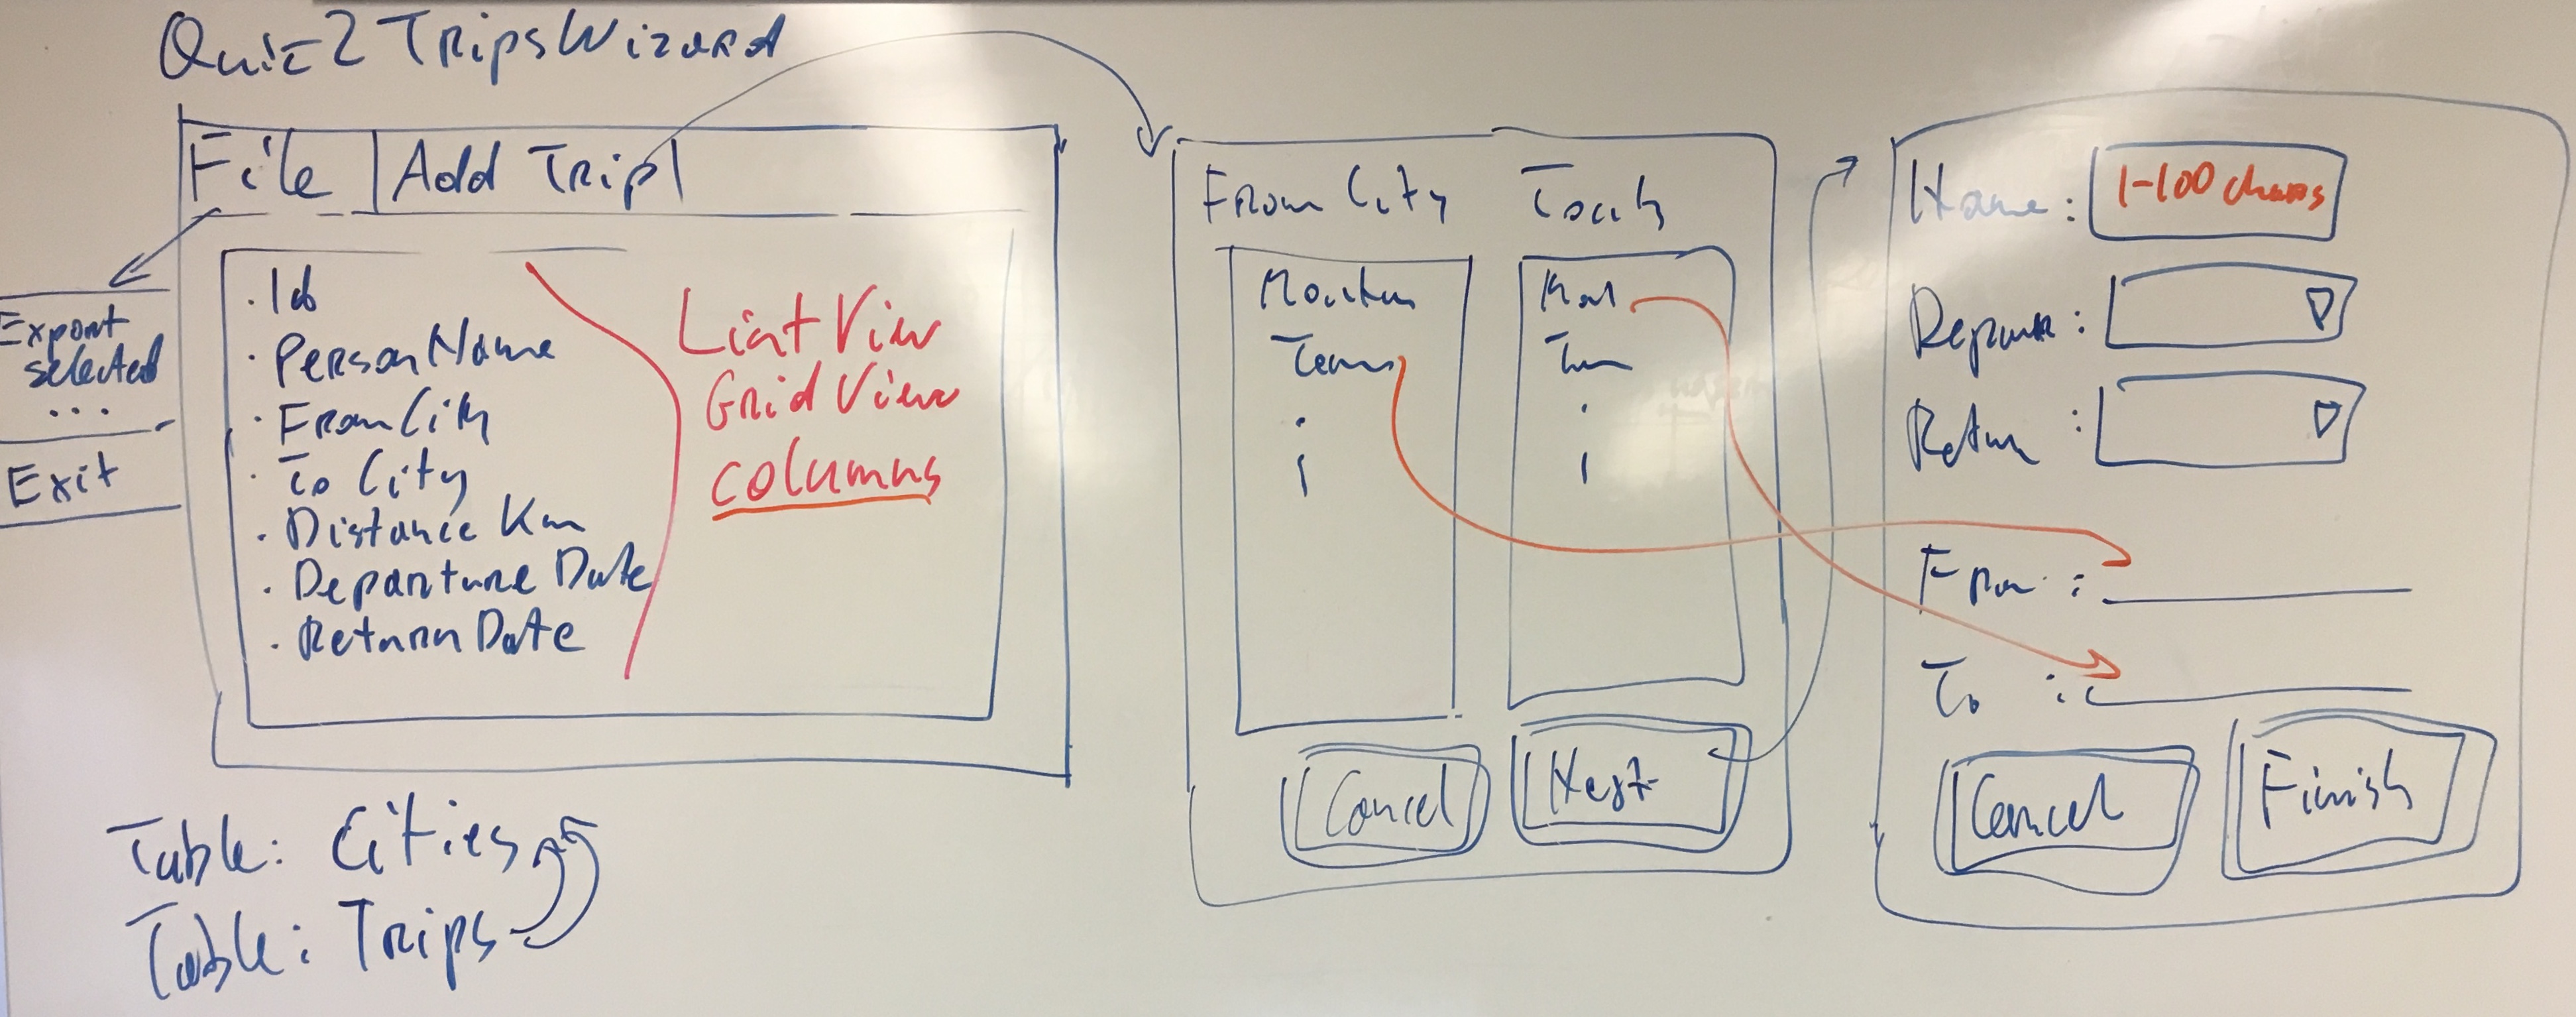 Quiz2 TripsWizard
File | Add Trip |
Export
selected
...
Exit
· Id
· PersonName
· From City
· To City
· Distance Km
· Departure Date
· Return Date
List View
Grid View
columns
Table: Cities
Table: Trips
From City
To city
Cancel
Next
Name: 1-100 chars
Return :
From :
To :
Cancel
Finish